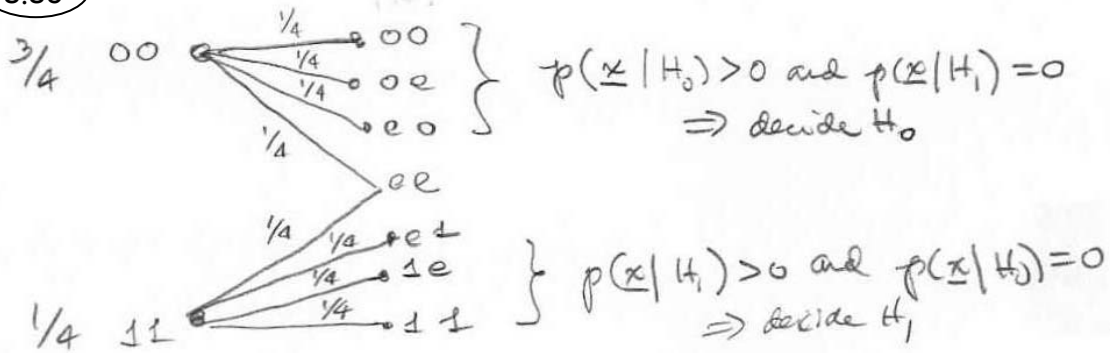 3/4 00 1/4 00
1/4 0e
1/4 e0
p(x | H₀) > 0 and p(x | H₁) = 0
⇒ decide H₀
1/4
ee
1/4 1/4 e1
1/4 1e
1/4 11 1/4 11
p(x | H₁) > 0 and p(x | H₀) = 0
⇒ decide H₁